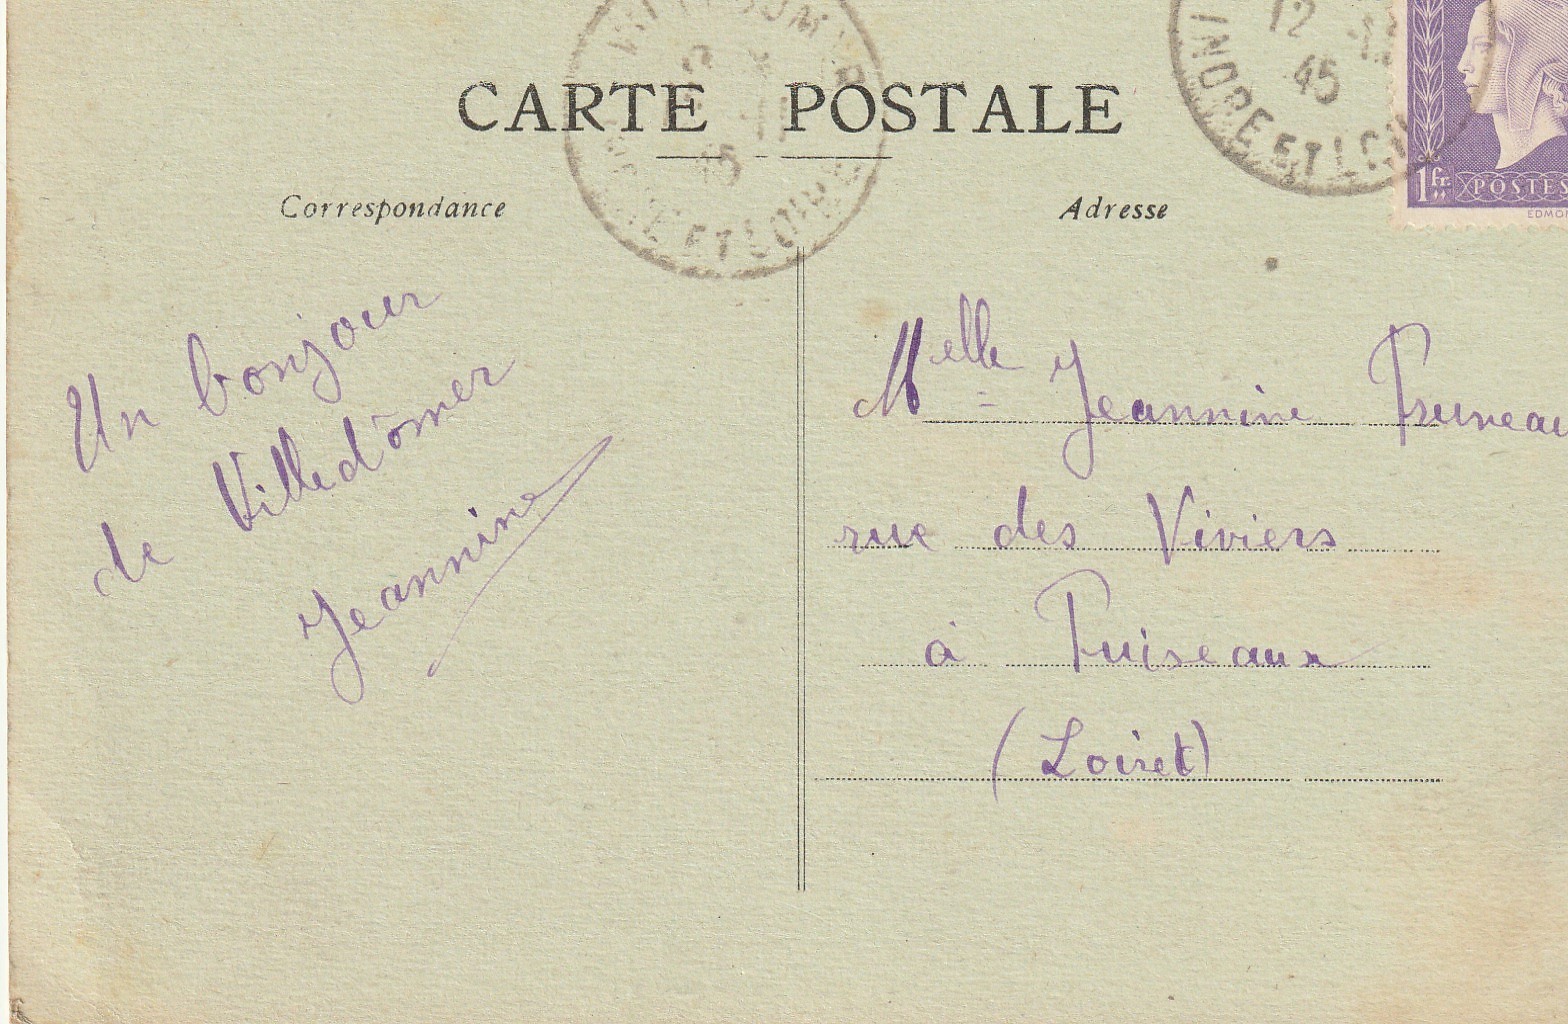 CARTE POSTALE
Correspondance
Adresse
12
45
INDRE ET
1fr POSTES
45
ET LOIRE
Un bonjour
de Villedômer
Jeannine
Melle Jeannine Pruneau
rue des Viviers
à Puiseaux
(Loiret)